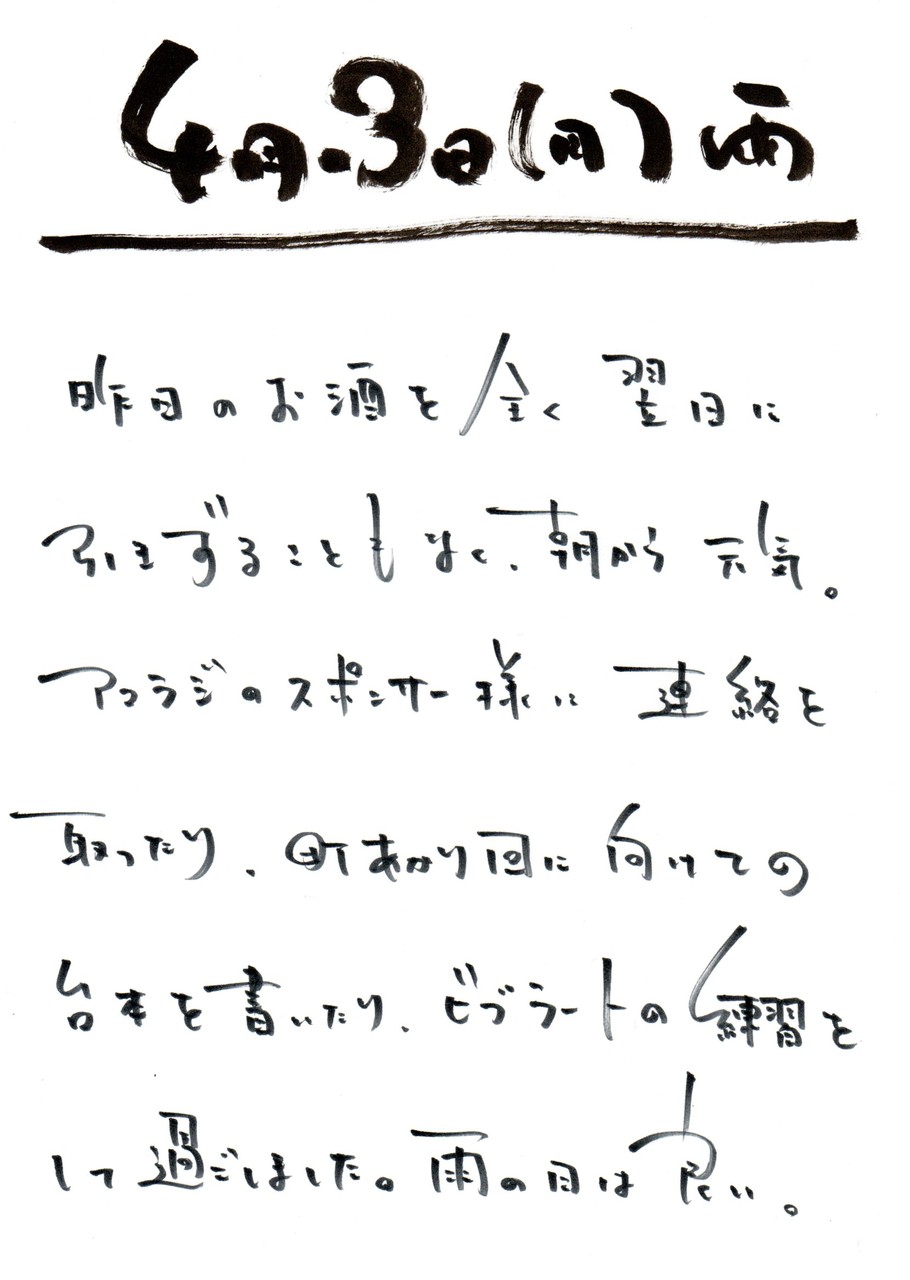 4月.3日(月)雨
昨日のお酒を全く翌日に
引きずることもなく、朝から元気。
アコラジのスポンサー様に連絡を
取ったり、町あかり回に向けての
台本を書いたり、ビブラートの練習を
して過ごしました。雨の日は良い。